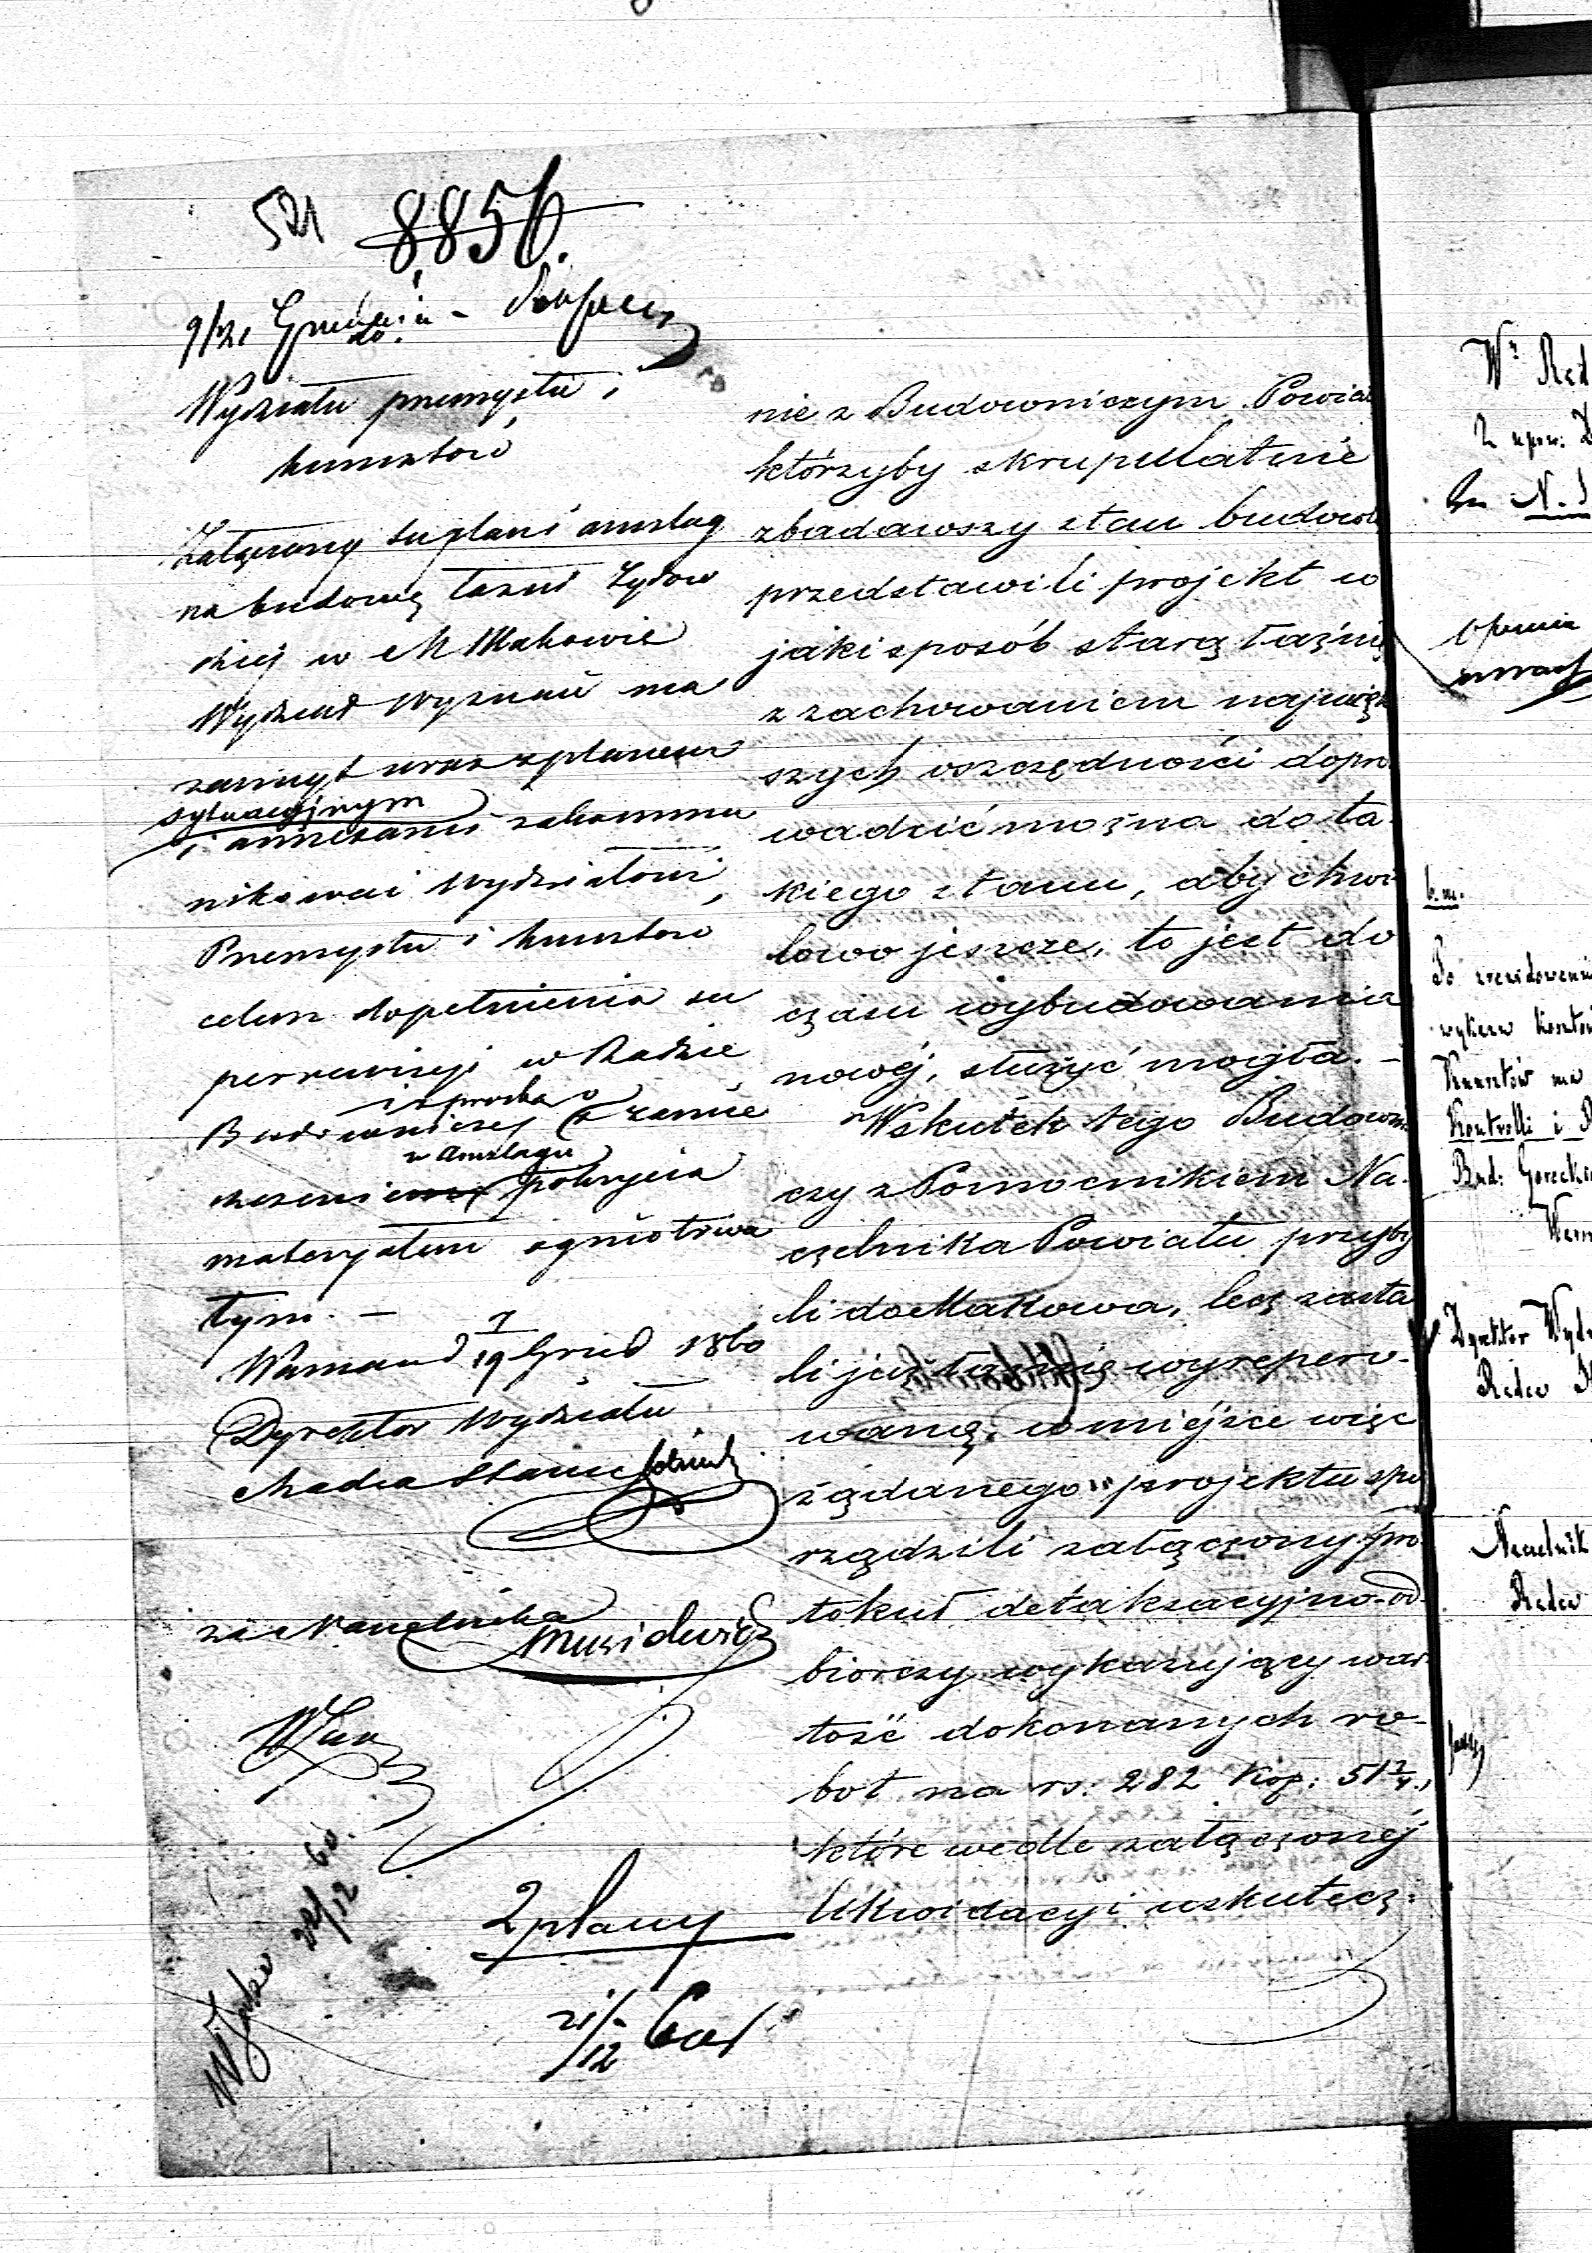 521 8856.
9/21 Grudnia
do.
Wydziału przemysłu i
kunsztów
Załączony tu plan i anszlag
na budowę łazni Żydow
skiej w M Makowie
Wydział Wyznań ma
zaszczyt wraz z planem
sytuacyjnym
i annexami zakommu
nikować Wydziałowi
Przemysłu i kunsztów
celem dopełnienia su
perrewizyi w Radzie
i z prośbą o
Budowniczej zamie
w Anszlagu
szczenie pokrycia
materyałem ogniotrwa
łym. —
Warszawa 7/19 Grud 1860
Dyrektor Wydziału
Radca Stanu
za Naczelnika
2 plany
21/12
22/12 60.
nie z Budowniczym Powiat
którzyby skrupulatnie
zbadawszy stan budowli
przedstawili projekt w
jaki sposób starą łaźnię
z zachowaniem najwięk
szych oszczędności dopro
wadzić można do ta-
kiego stanu, aby chwi-
lowo jeszcze, to jest do
czasu wybudowania
nowéj, służyć mogła. —
Wskutek tego Budowni
czy z Pomocnikiem Na-
czelnika Powiatu przyby
li do Makowa, lecz zasta
li już łaźnię wyrepero-
waną, w miéjsce więc
żądanego projektu spo
rządzili załączony pro
tokuł detaksacyjno-od-
biorczy wykazujący war
tość dokonanych ro-
bot na rs: 282 kop: 51¾,
które wedle załączonéj
likwidacyi uskutecz-
Wr Red
N.
b. m.
Po zrewidowaniu
wykazu kosztów
Kunsztów ma
Kontrolli i
Bud: Górecki
Dyrektor Wydz
Radca
Naczelnik
Radca